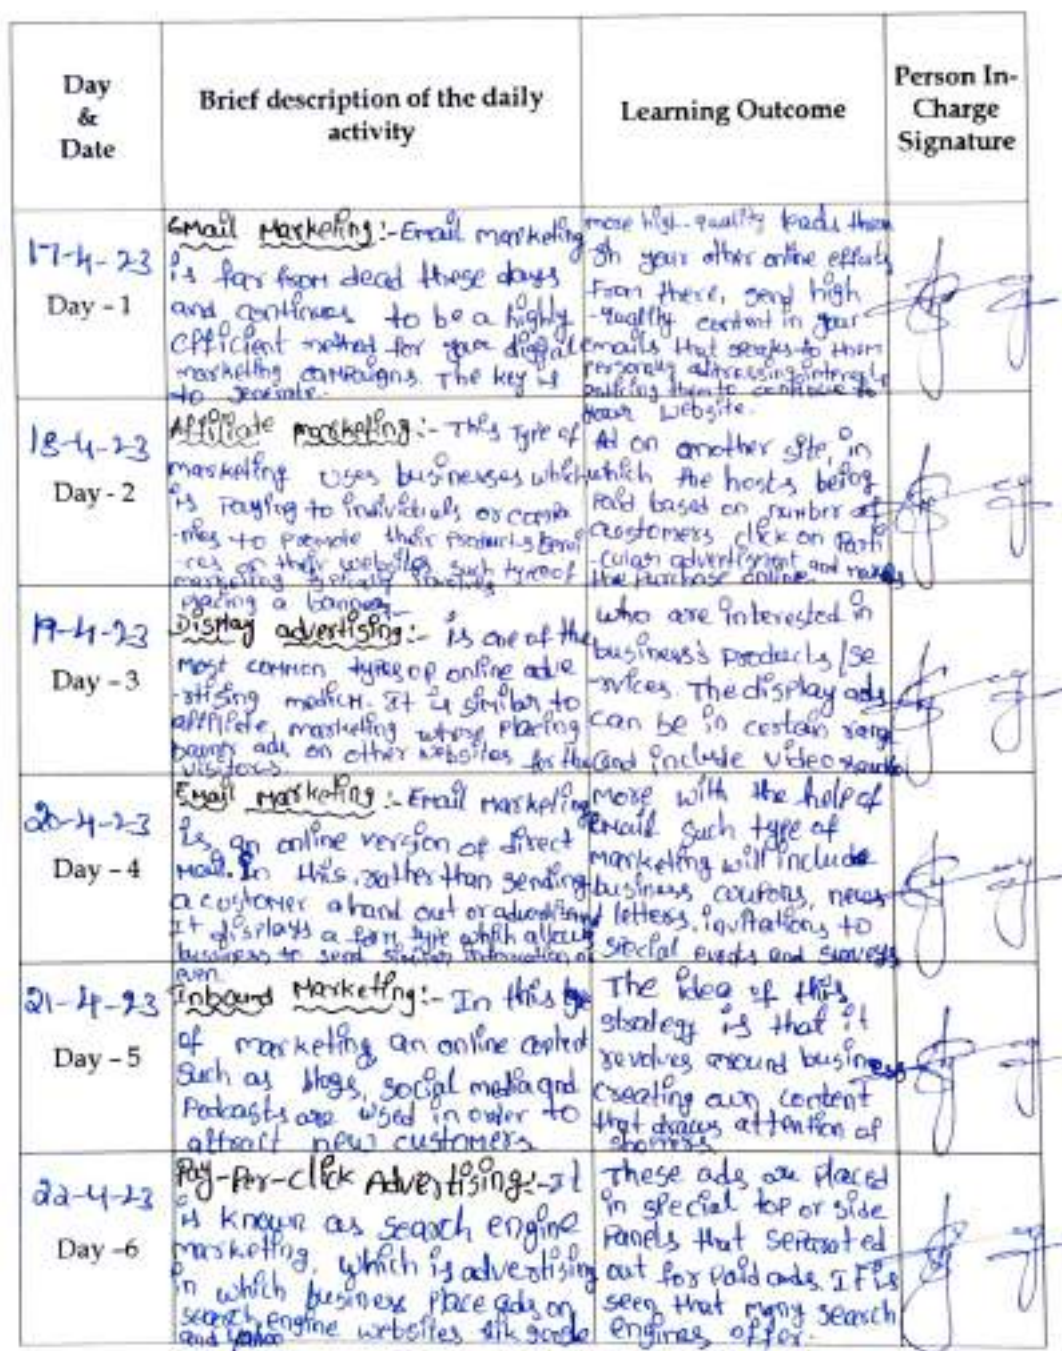 Day
&
Date
Brief description of the daily
activity
Learning Outcome
Person In-
Charge
Signature
17-4-23
Day - 1
Email Marketing:- Email marketing
is far from dead these days
and continues to be a highly
efficient method for your digital
marketing campaigns. The key is
to generate.
more high-quality leads throu
gh your other online efforts
From there, send high
-quality content in your
emails that speaks to them
personally addressing interests
enticing them to continue to
your website.
18-4-23
Day - 2
Affiliate marketing:- This type of
marketing uses businesses which
is Paying to individuals or compa
-nies to promote their products servi
-ces on their websites such type of
marketing typically involves
placing a banner
Ad on another site, in
which the hosts being
Paid based on number of
customers click on Parti
-cular advertisment and makes
the purchase online.
19-4-23
Day - 3
Display advertising:- is one of the
most common types of online adve
-rtising medium. It is similar to
affiliate, marketing whose placing
banner ads on other websites for the
visitors.
who are interested in
business's products/se
-rvices. The display ads
can be in certain range
and include video
20-4-23
Day - 4
Email Marketing:- Email marketing
is an online version of direct
mail. In this, rather than sending
a customer a hand out or advertisment
It displays a form type which allows
business to send similar information or
even
more with the help of
Email such type of
marketing will include
business coupons, news
letters, invitations to
special events and surveys
21-4-23
Day - 5
Inbound Marketing:- In this type
of marketing an online content
such as blogs, social media and
Podcasts are used in order to
attract new customers
The idea of this
strategy is that it
revolves around business
creating own content
that draws attention of
22-4-23
Day -6
Pay-Per-click Advertising:- It
is known as search engine
marketing, which is advertising
in which business place ads on
search engine websites lik google
and yahoo
These ads are placed
in special top or side
Panels that separated
out for paid ads. It is
seen that many search
engines offer.